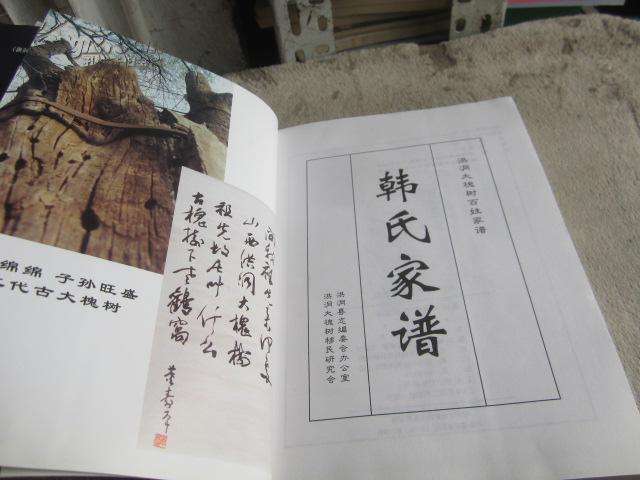 绵绵 子孙旺盛
代古大槐树
问我祖先来何处
山西洪洞大槐树
祖先故居叫什么
古槐树下老鹳窝
洪洞大槐树百姓家谱
韩氏家谱
洪洞县志编委会办公室
洪洞大槐树移民研究会